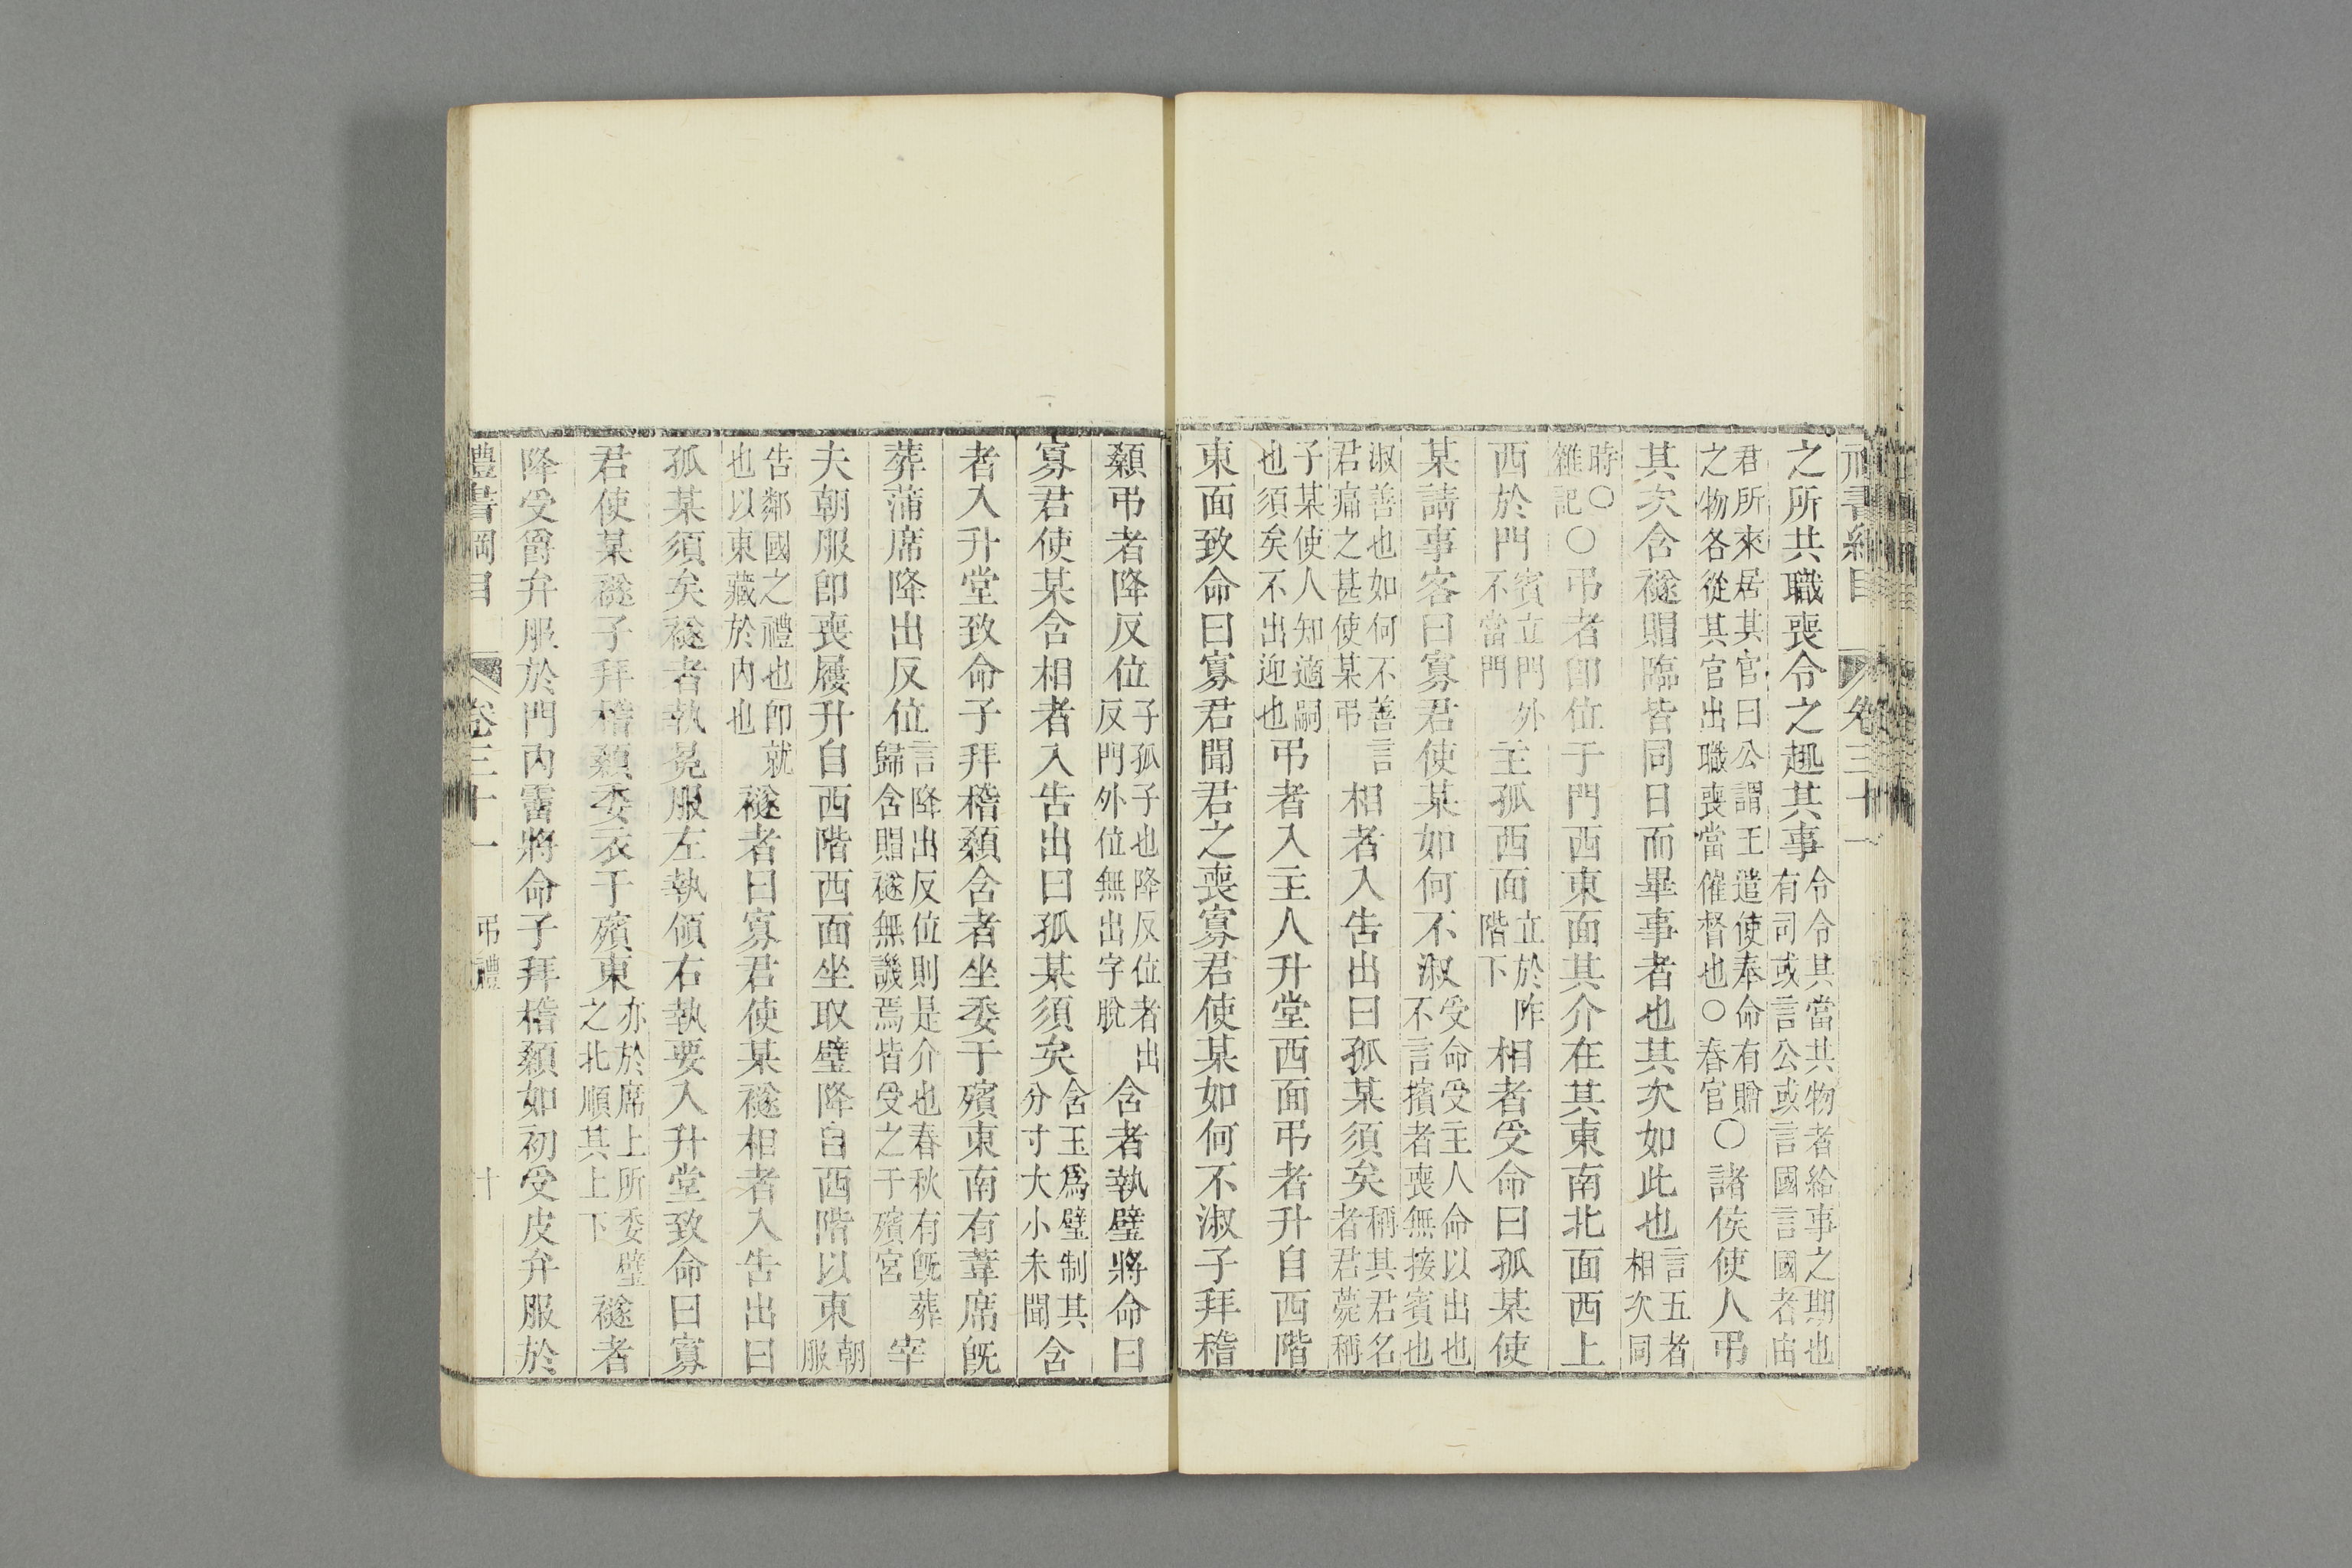 禮書綱目 卷三十一
之所共職喪令之趣其事令令其當共物者給事之期也有司或言公或言國言國者由
君所來居其官曰公謂王遣使奉命有贈之物各從其官出職喪當催督也○春官○諸侯使人弔
其次含襚賵臨皆同日而畢事者也其次如此也言五者相次同
時○雜記○弔者卽位于門西東面其介在其東南北面西上
西於門賓立門外不當門主孤西面立於阼階下相者受命曰孤某使
某請事客曰寡君使某如何不淑受命受主人命以出也不言擯者喪無接賓也
淑善也如何不善言君痛之甚使某弔相者入告出曰孤某須矣稱其君名者君薨稱
子某使人知適嗣也須矣不出迎也弔者入主人升堂西面弔者升自西階
東面致命曰寡君聞君之喪寡君使某如何不淑子拜稽
顙弔者降反位子孤子也降反位者出反門外位無出字脫含者執璧將命曰
寡君使某含相者入告出曰孤某須矣含玉爲璧制其分寸大小未聞含
者入升堂致命子拜稽顙含者坐委于殯東南有葦席旣
葬蒲席降出反位言降出反位則是介也春秋有旣葬歸含賵襚無譏焉皆受之于殯宮宰
夫朝服卽喪屨升自西階西面坐取璧降自西階以東朝服
告鄰國之禮也卽就也以東藏於內也襚者曰寡君使某襚相者入告出曰
孤某須矣襚者執冕服左執領右執要入升堂致命曰寡
君使某襚子拜稽顙委衣于殯東亦於席上所委璧之北順其上下襚者
降受爵弁服於門內霤將命子拜稽顙如初受皮弁服於
禮書綱目 卷三十一 弔禮 十